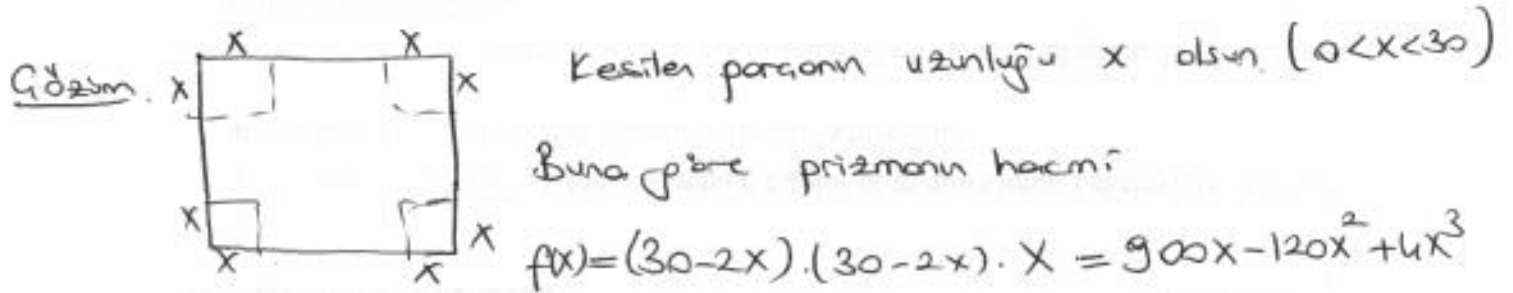 x x
Çözüm. x x Kesilen parçanın uzunluğu x olsun. (0<x<30)
Buna göre prizmanın hacmi
x x
x x
f(x)=(30-2x).(30-2x).x = 900x-120x²+4x³